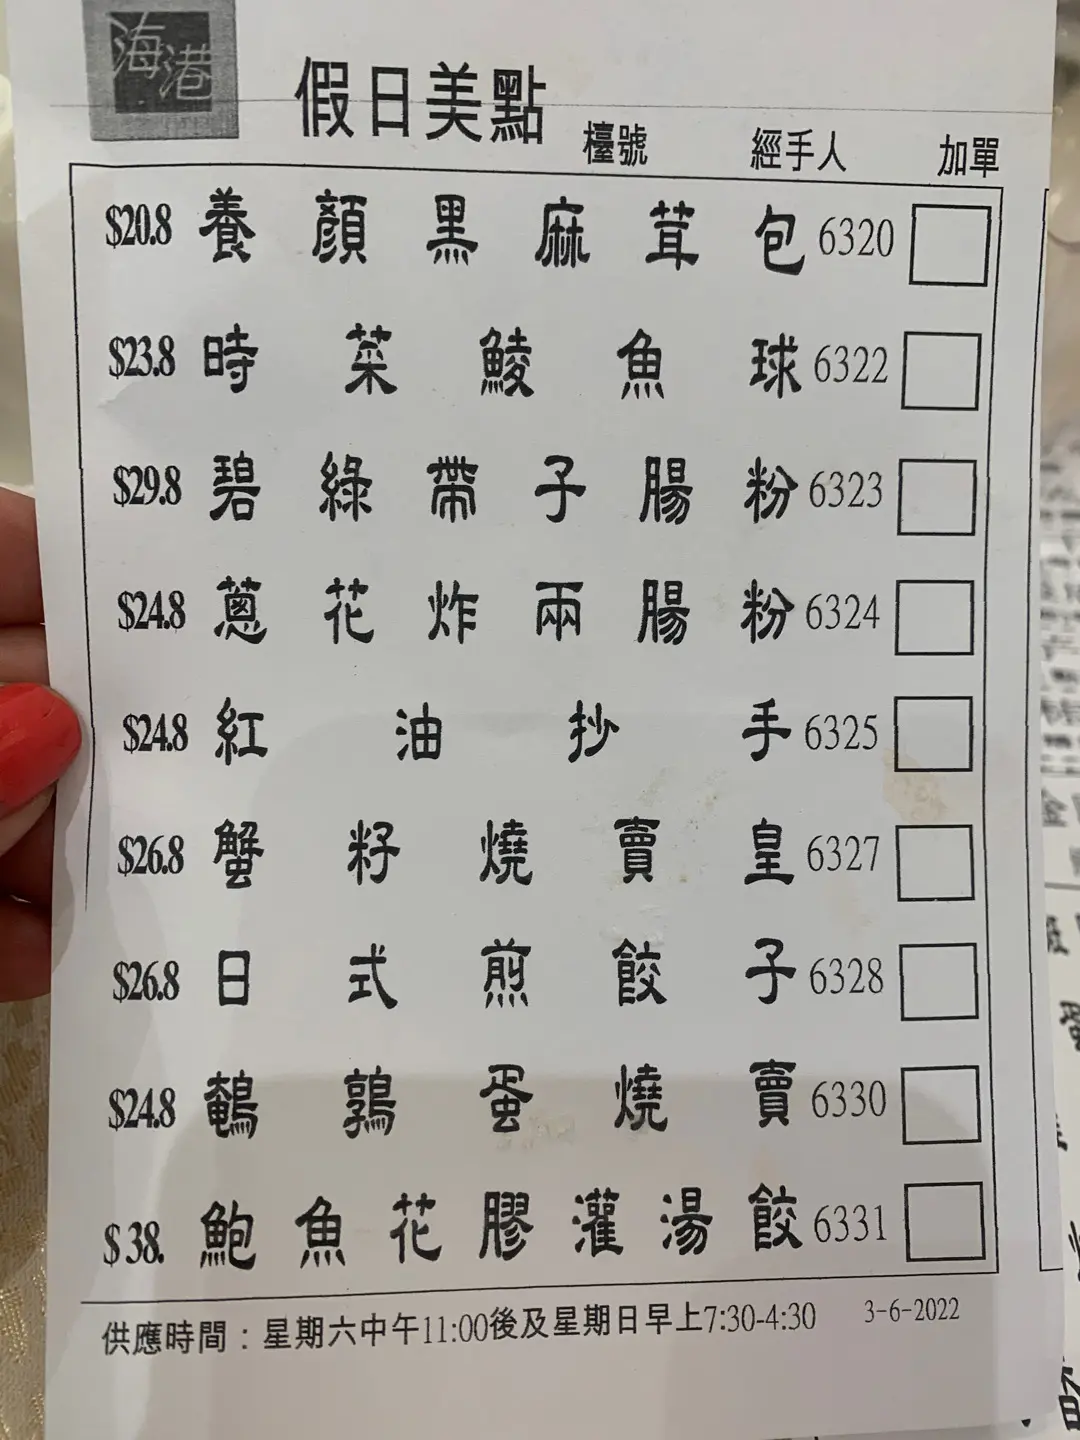 海港
假日美點
檯號 經手人 加單
$20.8 養顏黑麻茸包 6320
$23.8 時菜鯪魚球 6322
$29.8 碧綠帶子腸粉 6323
$24.8 蔥花炸兩腸粉 6324
$24.8 紅油抄手 6325
$26.8 蟹籽燒賣皇 6327
$26.8 日式煎餃子 6328
$24.8 鵪鶉蛋燒賣 6330
$38. 鮑魚花膠灌湯餃 6331
供應時間：星期六中午11:00後及星期日早上7:30-4:30 3-6-2022